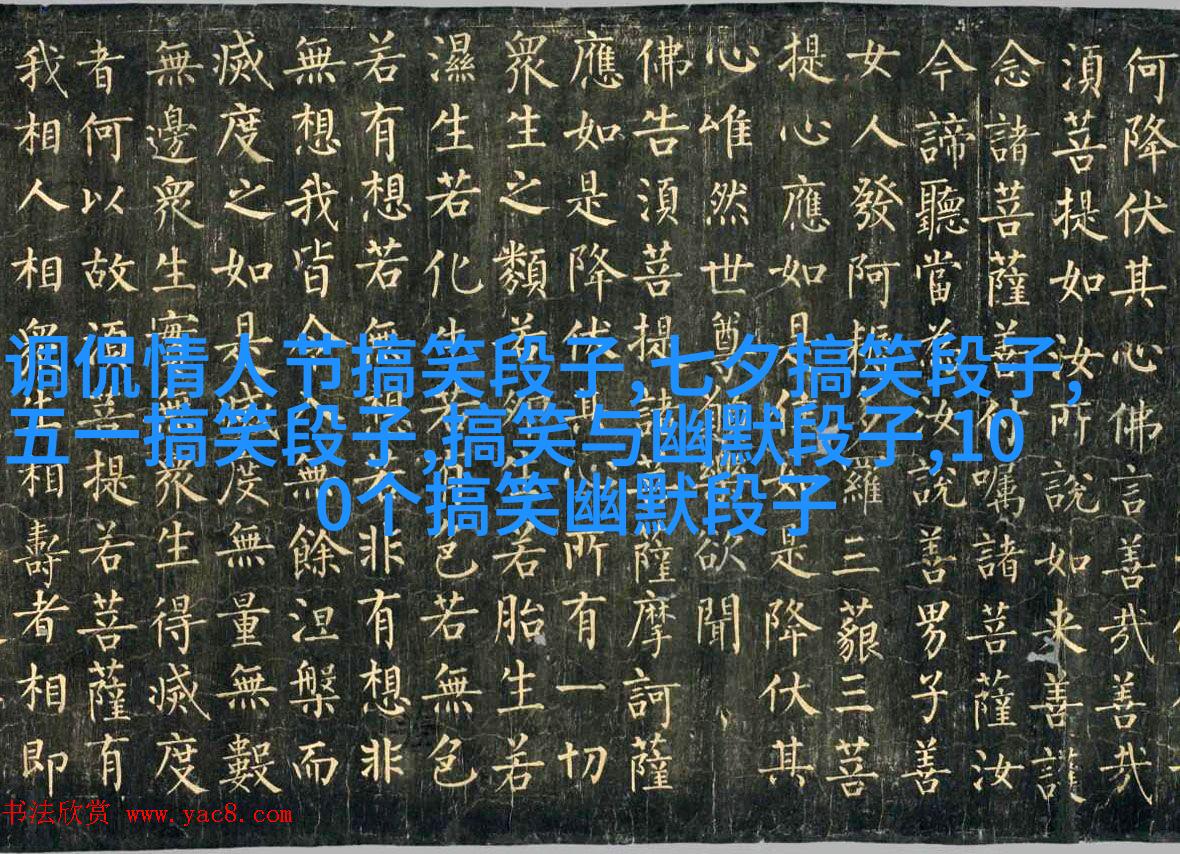 何降伏其心佛言善哉善哉
須菩提如汝所說如来善護
念諸菩薩善付嘱諸菩薩汝
今諦聽當為汝說善男子善
女人發阿耨多羅三藐三菩
提心應如是住如是降伏其
心唯然世尊願樂欲聞
佛告須菩提諸菩薩摩訶薩
應如是降伏其心所有一切
衆生之類若卵生若胎生若
濕生若化生若有色若無色
若有想若無想若非有想非
無想我皆令入無餘涅槃而
滅度之如是滅度無量無數
無邊衆生實無衆生得滅度
者何以故須菩提若菩薩有
我相人相衆生相壽者相即
调侃情人节搞笑段子,七夕搞笑段子,
五一搞笑段子,搞笑与幽默段子,10
0个搞笑幽默段子
书法欣赏 www.yac8.com